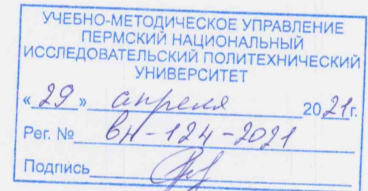 УЧЕБНО-МЕТОДИЧЕСКОЕ УПРАВЛЕНИЕ
ПЕРМСКИЙ НАЦИОНАЛЬНЫЙ
ИССЛЕДОВАТЕЛЬСКИЙ ПОЛИТЕХНИЧЕСКИЙ
УНИВЕРСИТЕТ
« 29 » апреля 2021г.
Рег. № вн-124-2021
Подпись